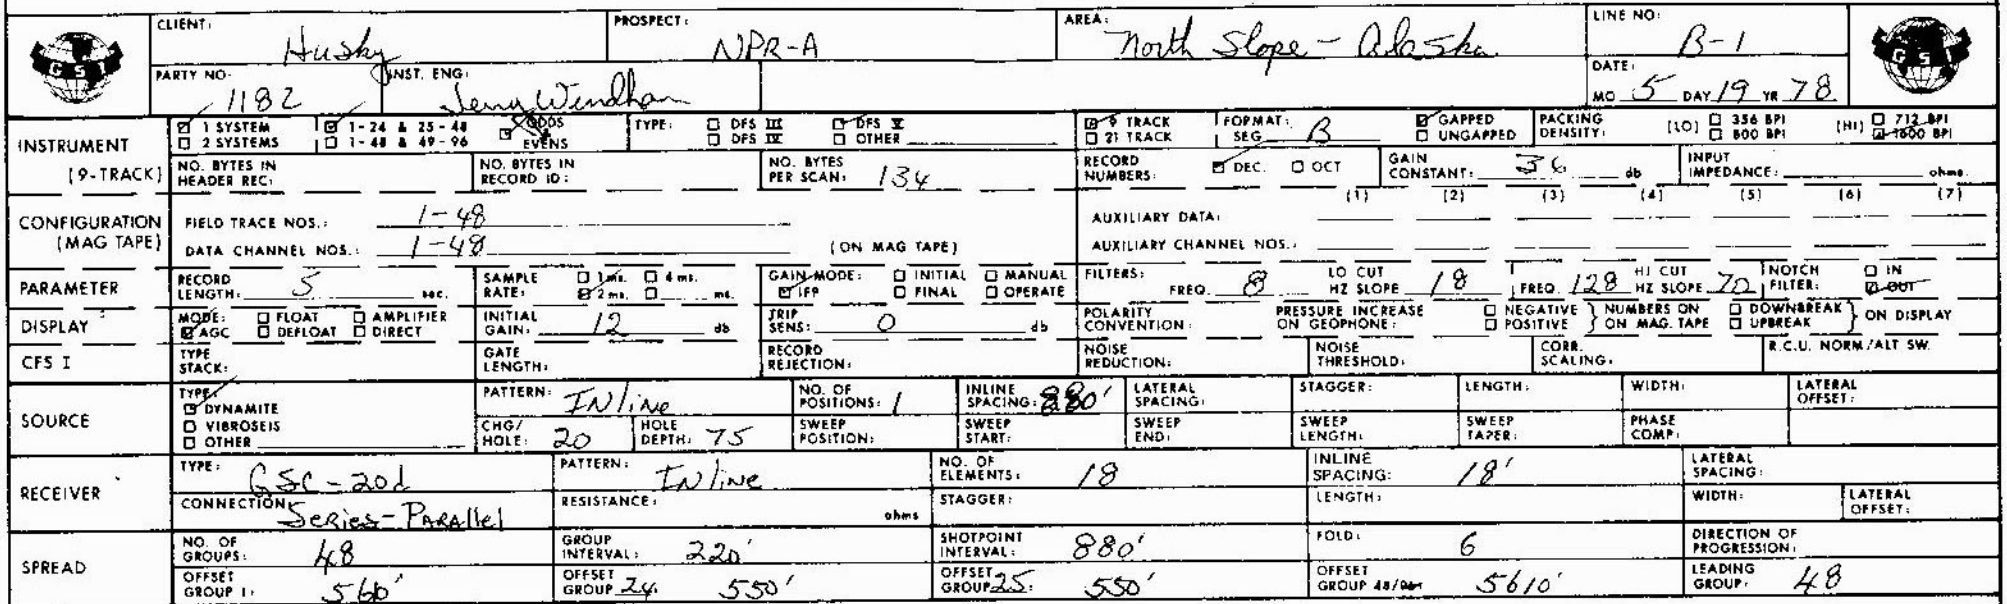 CLIENT: Husky PROSPECT: NPR-A AREA: North Slope - Alaska LINE NO: B-1
GSI GSI
PARTY NO: 1182 INST. ENG: Jerry Windham DATE: MO 5 DAY 19 YR 78
INSTRUMENT (9-TRACK)
1 SYSTEM 1-24 & 25-48 ODDS TYPE: DFS III DFS V 9 TRACK FORMAT: GAPPED PACKING DENSITY: (LO) 356 BPI (HI) 712 BPI
2 SYSTEMS 1-48 & 49-96 EVENS DFS IV OTHER 21 TRACK SEG B UNGAPPED 800 BPI 1600 BPI
NO. BYTES IN HEADER REC: NO. BYTES IN RECORD ID: NO. BYTES PER SCAN: 134 RECORD NUMBERS: DEC. OCT GAIN CONSTANT: 36 db INPUT IMPEDANCE: ohms.
CONFIGURATION (MAG TAPE)
(1) (2) (3) (4) (5) (6) (7)
FIELD TRACE NOS.: 1-48 AUXILIARY DATA:
DATA CHANNEL NOS.: 1-48 (ON MAG TAPE) AUXILIARY CHANNEL NOS.:
PARAMETER RECORD LENGTH: 5 sec. SAMPLE RATE: 1 ms. 4 ms. 2 ms. ms. GAIN-MODE: INITIAL MANUAL IFP FINAL OPERATE FILTERS: FREQ. 8 LO CUT HZ SLOPE 18 FREQ. 128 HI CUT HZ SLOPE 70 NOTCH FILTER: IN OUT
DISPLAY MODE: FLOAT AMPLIFIER AGC DEFLOAT DIRECT INITIAL GAIN: 12 db TRIP SENS: 0 db POLARITY CONVENTION: PRESSURE INCREASE ON GEOPHONE: NEGATIVE POSITIVE } NUMBERS ON MAG. TAPE DOWNBREAK UPBREAK } ON DISPLAY
CFS I TYPE STACK: GATE LENGTH: RECORD REJECTION: NOISE REDUCTION: NOISE THRESHOLD: CORR. SCALING: R.C.U. NORM/ALT SW.
SOURCE
TYPE: DYNAMITE VIBROSEIS OTHER
PATTERN: INline NO. OF POSITIONS: 1 INLINE SPACING: 880' LATERAL SPACING: STAGGER: LENGTH: WIDTH: LATERAL OFFSET:
CHG/HOLE: 20 HOLE DEPTH: 75 SWEEP POSITION: SWEEP START: SWEEP END: SWEEP LENGTH: SWEEP TAPER: PHASE COMP:
RECEIVER
TYPE: GSC-20d PATTERN: INline NO. OF ELEMENTS: 18 INLINE SPACING: 18' LATERAL SPACING:
CONNECTION: Series-Parallel RESISTANCE: ohms STAGGER: LENGTH: WIDTH: LATERAL OFFSET:
SPREAD
NO. OF GROUPS: 48 GROUP INTERVAL: 220' SHOTPOINT INTERVAL: 880' FOLD: 6 DIRECTION OF PROGRESSION:
OFFSET GROUP 1: 5610' OFFSET GROUP 24: 550' OFFSET GROUP 25: 550' OFFSET GROUP 48/96: 5610' LEADING GROUP: 48